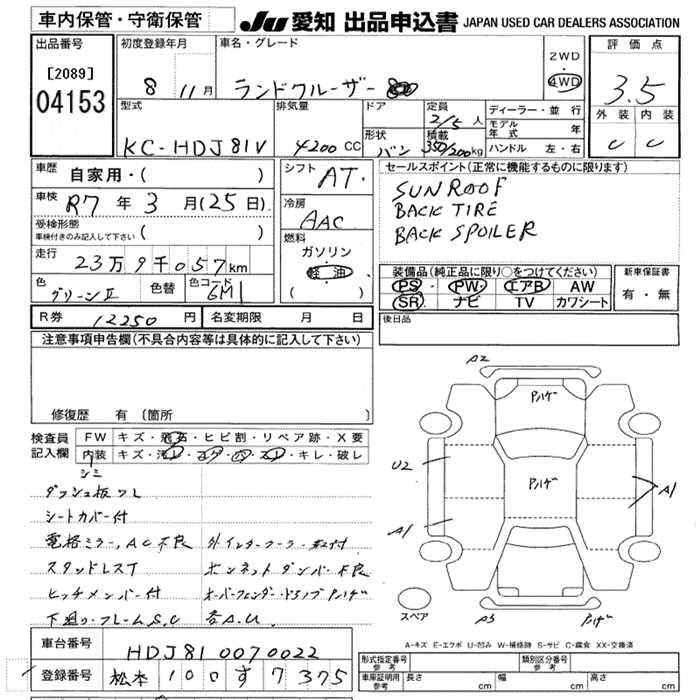 車内保管・守衛保管
JU 愛知 出品申込書 JAPAN USED CAR DEALERS ASSOCIATION
出品番号
[2089]
04153
初度登録年月
8 11月
車名・グレード
ランドクルーザー 80
2WD
4WD
評価点
3.5
外装 内装
C C
型式
KC-HDJ81V
排気量
4200 CC
ドア
形状
バン
定員
2/5 人
積載
350/200kg
ディーラー・並行
モデル年式 年
ハンドル 左・右
車歴
自家用・( )
車検
R7 年 3 月(25日)
受検形態
車検付きのみ記入して下さい ( )
走行
23万9千057km
色
グリーンⅡ
色替
色コード
6M1
シフト
AT
冷房
AAC
燃料
ガソリン
軽油
( )
セールスポイント(正常に機能するものに限ります)
SUNROOF
BACK TIRE
BACK SPOILER
装備品(純正品に限り○をつけてください)
PS・PW・エアB AW
SR ナビ TV カワシート
新車保証書
有・無
R券 12250 円
名変期限 月 日
後日品
注意事項申告欄(不具合内容等は具体的に記入して下さい)
修復歴 有(箇所 )
検査員記入欄
FW キズ・飛石・ヒビ割・リペア跡・X要
内装 キズ・汚レ・コゲ・穴・スレ・キレ・破レ
シミ
ダッシュ板ワレ
シートカバー付
電格ミラー、AC不良
スタッドレスT
ボンネットダンパー不良
ヒッチメンバー付
下廻り・フレームS,C
A2
Pハゲ
U2
Pハゲ
A1
A1
A3
Pハゲ
スペア
A-キズ E-エクボ U-凹み W-補修跡 S-サビ C-腐食 XX-交換済
車台番号
HDJ81 0070022
登録番号
松本 100 す 7375
形式指定番号 参考
類別区分番号 参考
車庫証明用 参考
長さ cm
幅 cm
高さ cm